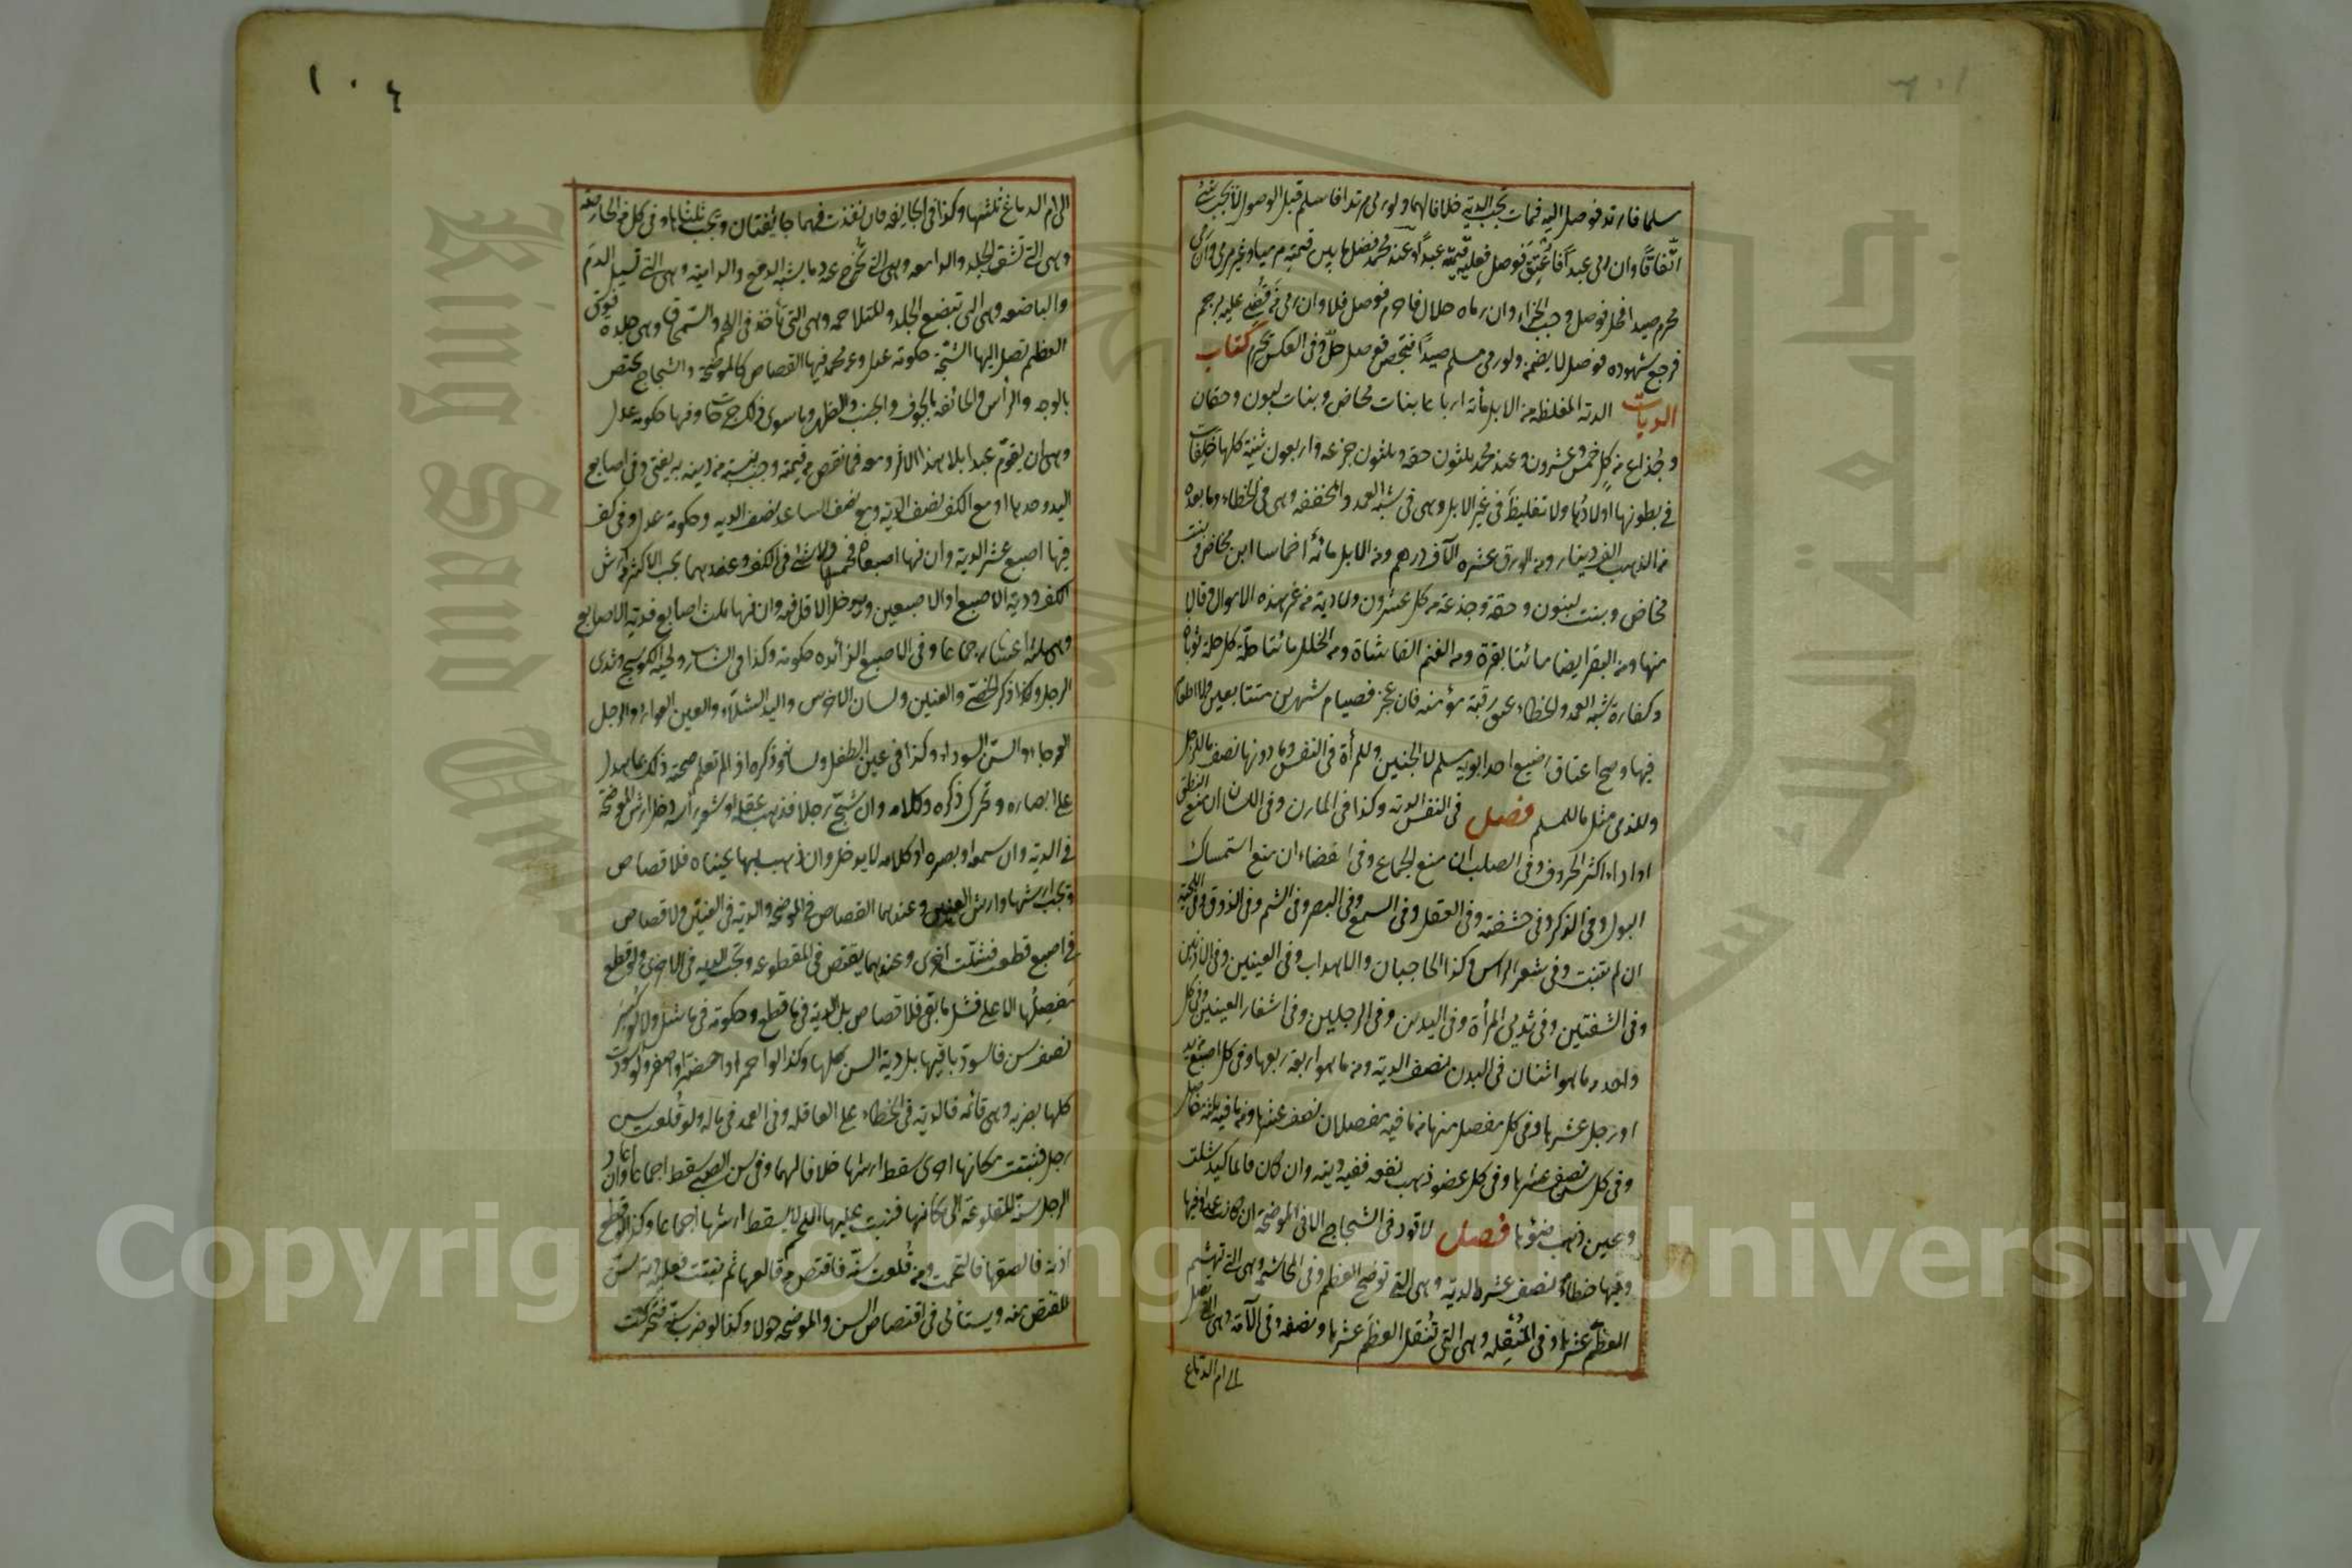 مسلما فارتد فوصل اليه فمات تجب الدية خلافا لهما ولو رمى مرتدا فاسلم قبل الوصول لا يجب شئ
اتفاقًا وان رمى عبداً فأُعتِقَ فوصل فعليه قيمته عبداً وعند محمد فضل ما بين قيمته مرميا وغير مرمى وان رمى
محرم صيدا فحل فوصل وجب الجزاء وان رماه حلال فاحرم فوصل فلا وان رمى من قُضى عليه برجم
فرجع شهوده فوصل لا يضمن ولو رمى مسلم صيداً فتمجس فوصل حلّ وفى العكس يحرم كتاب
الديات الدية المغلظة من الابل مائة ارباعا بنات مخاض وبنات لبون وحقاق
وجُذاع من كلٍ خمس وعشرون وعند محمد ثلثون حقة وثلثون جزعه واربعون ثنية كلها خَلِفات
فى بطونها اولادُها ولا تغليظَ فى غير الابل وهى فى شبه العمد والمخففه وهى فى الخطاء وما بعده
من الذهب الف دينار ومن الورق عشرة الآف درهم ومن الابل مائة اخماسا ابن مخاض وبنت
مخاض وبنت لبون وحقة وجذعة من كل عشرون ولا دية من غير هذه الاموال وقالا
منها ومن البقر ايضا مائتا بقرة ومن الغنم الفا شاة ومن الحلل مائتا حلة كل حلة ثوبان
وكفارة شبه العمد والخطاء عتق رقبة مؤمنه فان عجز فصيام شهرين متتابعين ولا اطعام
فيها وصح اعتاق رضيع احد ابويه مسلم لا الجنين وللمرأة فى النفس وما دونها نصف ما للرجل
وللذمى مثل ما للمسلم فصل فى النفس الدية وكذا فى المارن وفى اللسان ان منع النطق
او اداء اكثر الحروف وفى الصلب ان منع الجماع وفى افضاء ان منع استمساك
البول وفى الذكر وفى حشفته وفى العقل وفى السمع وفى البصر وفى الشم وفى الذوق وفى اللحية
ان لم تنبت وفى شعر الراس وكذا الحاجبان والاهداب وفى العينين وفى الاذنين
وفى الشفتين وفى ثديى المرأة وفى اليدين وفى الرجلين وفى اشفار العينين وفى كل
واحد مما هو اثنان فى البدن نصف الدية ومن ما هو اربعة ربعها وفى كل اصبع يد
او رجل عشرها وفى كل مفصل منها مما فيه مفصلان نصف عشرها ومما فيه ثلثة مفاصل
وفى كل سن نصف عشرها وفى كل عضو ذهب نفعه ففيه ديته وان كان قائما كيد شلت
وعين ذهب ضوؤها فصل لا قود فى الشجاج الا فى الموضحة ان كانت عمدا وفيها
وفيها خطاءً نصف عشر الدية وهى التى توضح العظم وفى الهاشمه وهى التى تهشم
العظم عشرها وفى المُنقِّله وهى التى تُنقل العظم عشرها ونصفه وفى الآمة وهى التى تصل
الى ام الدماغ
١٠٤
الى ام الدماغ ثلثها وكذا فى الجايفة فان نفذت فهما جائفتان ويجب ثلثاها وفى كل من الحارصة
وهى التى تشق الجلد والدامعه وهى التى تُخرج منه ما يشبه الدمع والدامية وهى التى تسيل الدم
والباضعه وهى التى تبضع الجلد والمتلاحمه وهى التى تأخذ فى اللحم والسمحاق وهى جلدة فوق
العظم تصل اليها الشجّة حكومة عدل وعن محمد فيها القصاص كالموضحة والشجاج يختص
بالوجه والرأس والجائفه بالجوف والجنب والظهر وما سوى ذلك جراحات وفيها حكومة عدل
وهى ان يقوّم عبدا بلا هذا الاثر ومعه فما نقص من قيمته وجب بنسبته من ديته به يفتى وفى اصابع
اليد وحدها او مع الكف نصف الدية ومع نصف الساعد نصف الديه وحكومة عدل وفى كف
فيها اصبع عشر الدية وان فيها اصبعان فخمسها ولا شئ فى الكف وعندهما يجب الاكثر من ارش
الكف ودية الاصبع او الاصبعين ويدخل الاقل فيه وان فيها ثلث اصابع فدية الاصابع
وهى ثلثة اعشار اجماعا وفى الاصبع الزائده حكومة وكذا فى الشارب ولحية الكوسج وثدى
الرجل وكذا ذكر الخصى والعنين ولسان الاخرس واليد الشلاء والعين العوراء والرجل
العرجاء والسن السوداء وكذا فى عين الطفل ولسانه وذكره اذ لم تعلم صحة ذلك بما يدل
على ابصاره وتحرك ذكره وكلامه وان شجّ رجلا فذهب عقله او شعر رأسه دخل ارش الموضحة
فى الدية وان سمعه او بصره او كلامه لا يدخل وان ذهب بها عيناه فلا قصاص
ويجب ارشها وارش العينين وعندهما القصاص فى الموضحة والدية فى العينين ولا قصاص
فى اصبع قطعت فشلّت اخرى وعندهما يقتص فى المقطوعه وتجب الدية فى الاخرى ولو قطع
مَفصِلُها الاعلى فشل ما بقى فلا قصاص بل الدية فى ما قطع وحكومة فى ما شل ولا لو كسر
نصف سن فاسودّ باقيها بل دية السن كلها وكذا لو احمر او اخضر او اصفر ولو اسودت
كلها بضربه وهى قائمه فالدية فى الخطاء على العاقله وفى العمد فى ماله ولو قُلعت سن
رجل فنبتت مكانها اخرى سقط ارشها خلافا لهما وفى سن الصبى سقط اجماعا وان اعاد
الرجل سنّه المقلوعة الى مكانها فنبت عليها اللحم لا يسقط ارشها اجماعا وكذا لو قطع
اذنه فالصقها فالتحمت ومن قُلعت سنّه فاقتص من قالعها ثم نبتت فعليه دية سن
المقتص منه ويستأنى فى اقتصاص السن والموضحه حولا وكذا لو ضرب سنه فتحركت
Copyright © King Saud University
جامعة الملك سعود
King Saud University